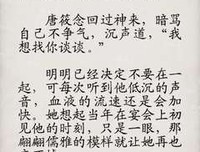 唐筱念回过神来，暗骂
自己不争气，沉声道，“我
想找你谈谈。”
明明已经决定不要在一
起，可每次听到他低沉的声
音，血液的流速还是会加
快。她想起当年在宴会上初
见他的时刻，只是一眼，那
翩翩儒雅的模样就让她再也